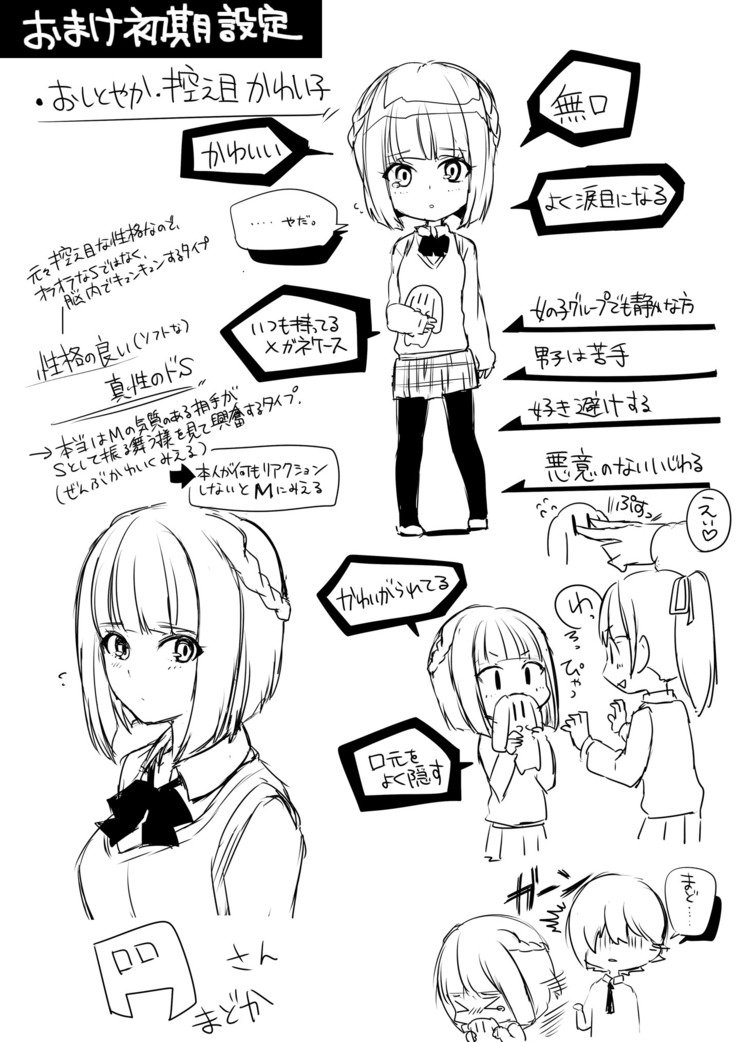 おまけ初期設定
・おしとやか・控え目かわい子
かわいい
無口
‥‥やだ。
よく涙目になる
元々控え目な性格なので、
オラオラなSではなく、
脳内でキュンキュンするタイプ
性格の良い(ソフトな)
真性のドS
→本当はMの気質のある相手が
Sとして振る舞う様を見て興奮するタイプ.
(ぜんぶかわいくみえる)
➡本人が何もリアクション
しないとMにみえる
いつも持ってる
メガネケース
女の子グループでも静かな方
男子は苦手
好き避けする
悪意のないいじわる
ぷすっ
えい♡
かわいがられてる
わっ
ろっ
ぴゃっ
口元を
よく隠す
ガーーン
まど‥‥
さん
まどか